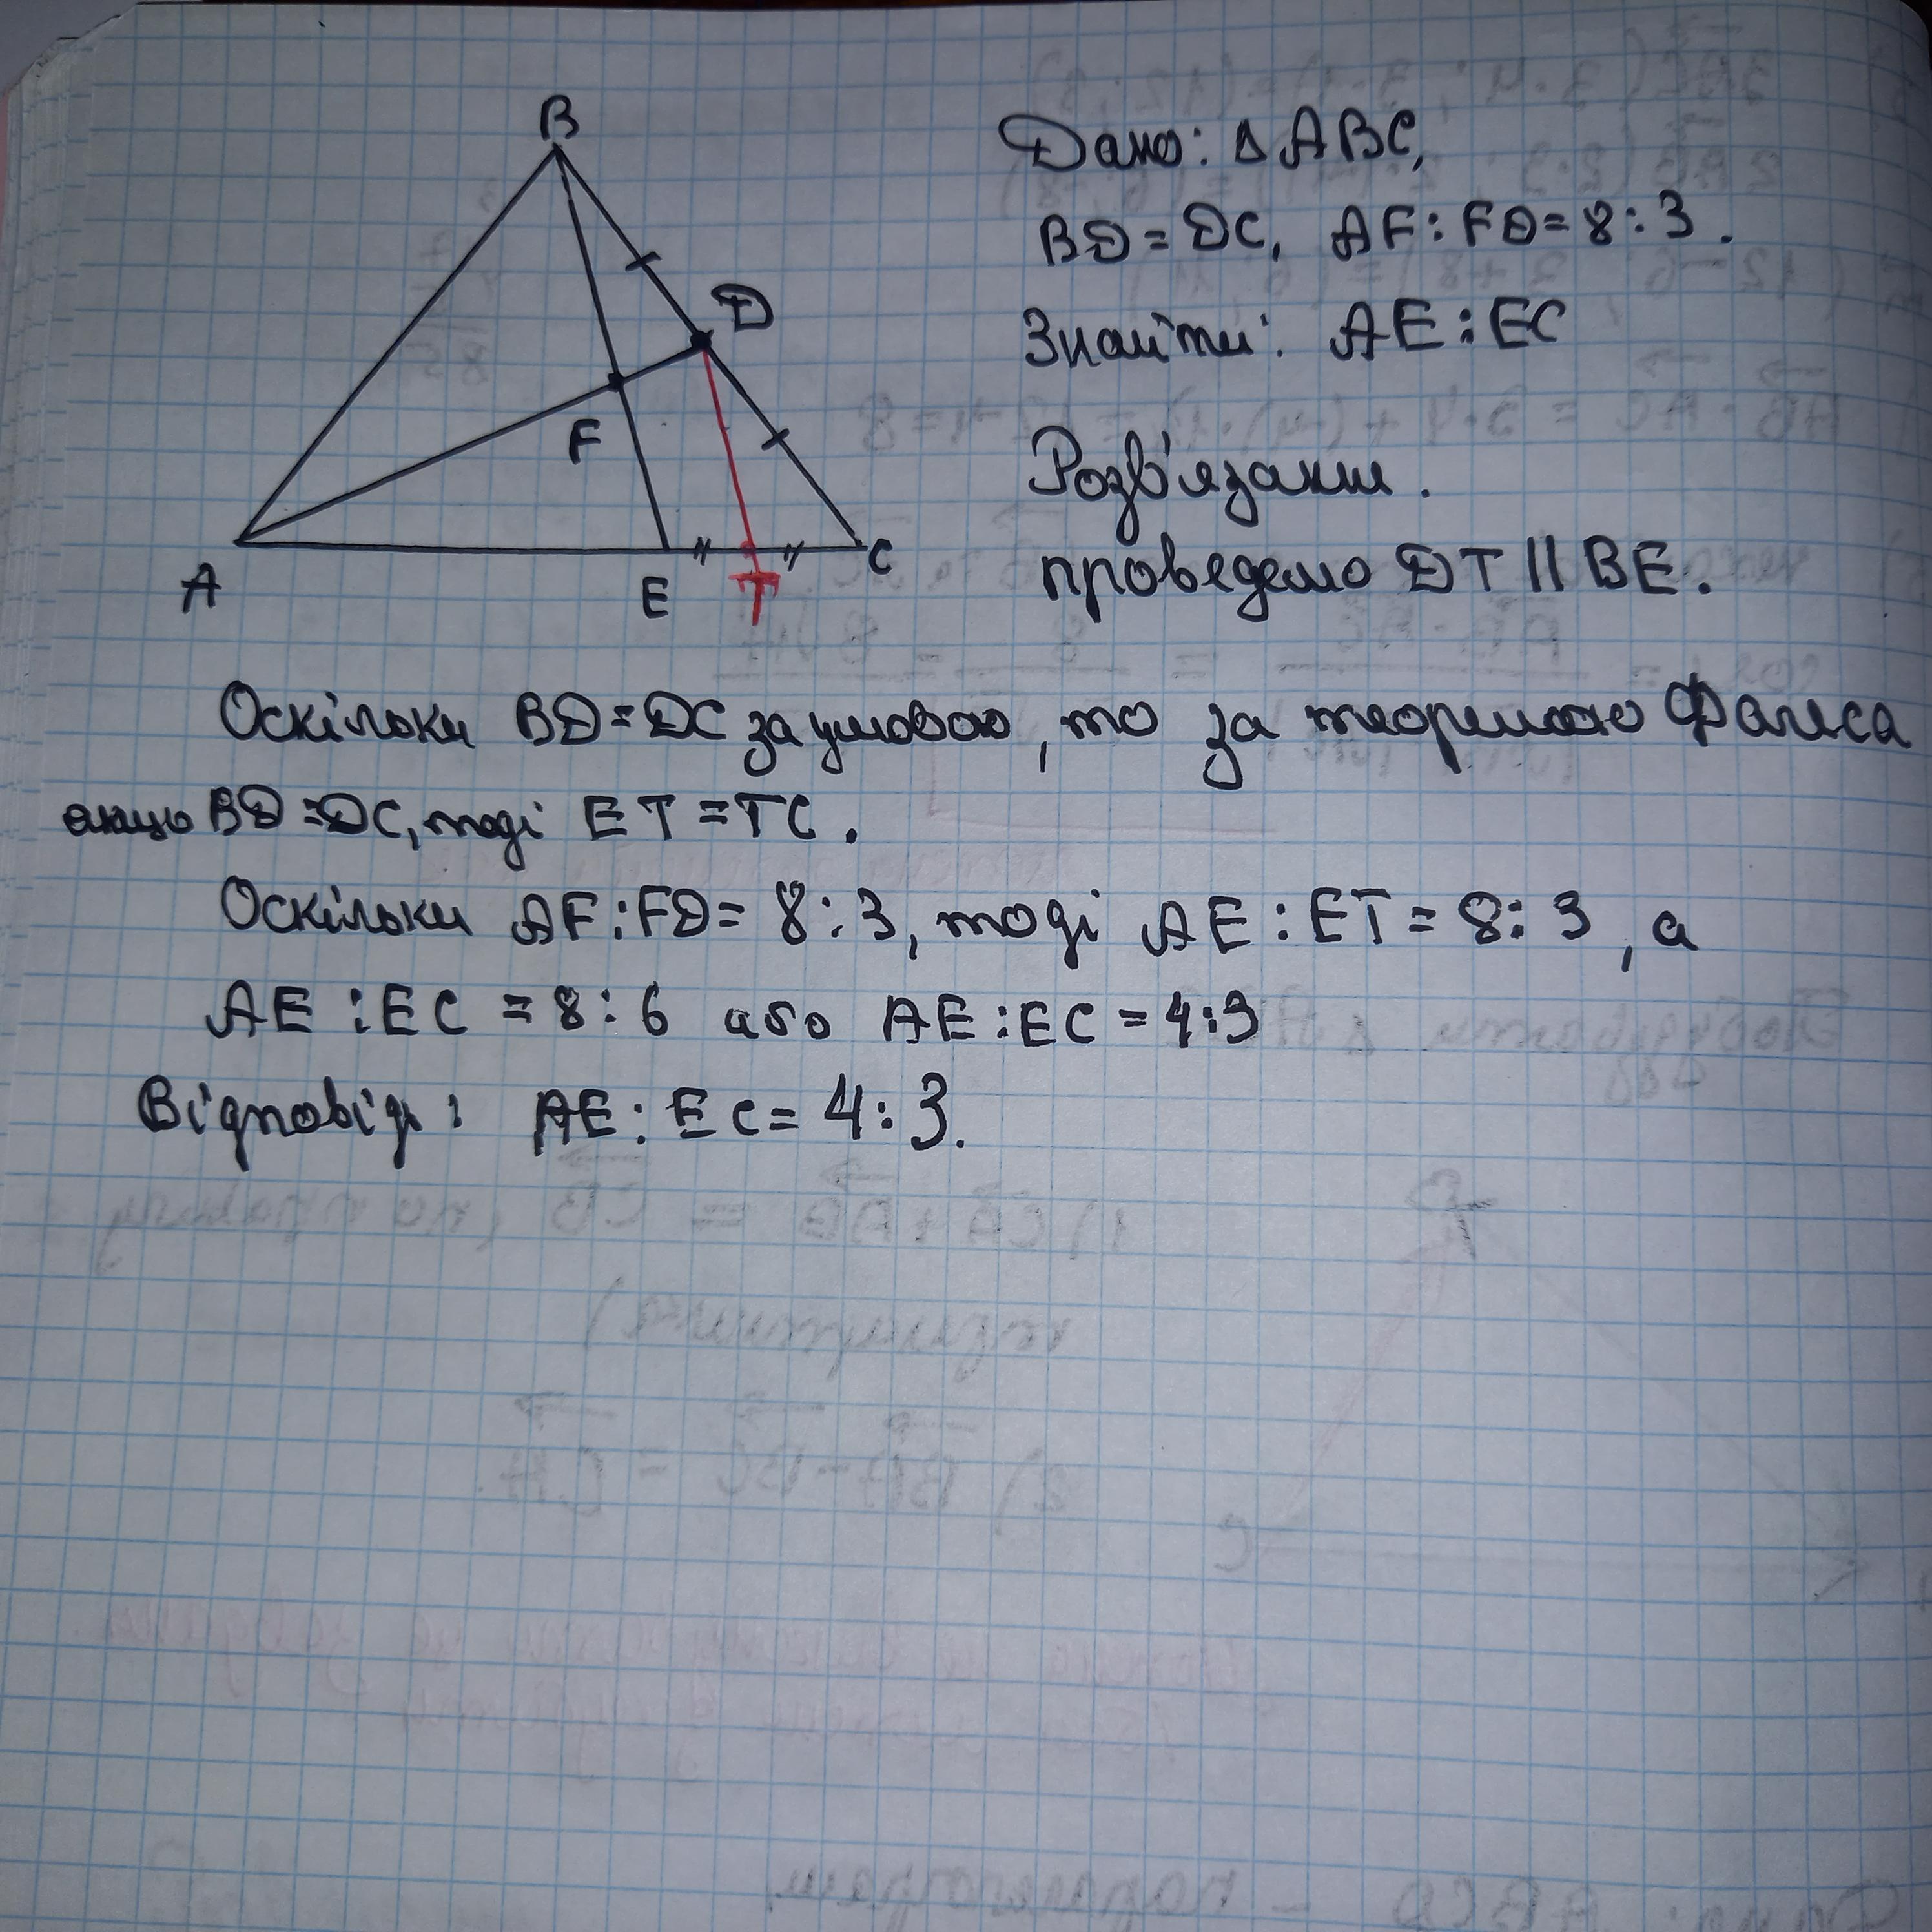 B
D
F
A
E
T
C
Дано: Δ ABC,
BD = DC, AF : FD = 8 : 3.
Знайти: AE : EC
Розв'язання.
проведемо DT || BE.
Оскільки BD = DC за умовою, то за теоремою Фалеса
якщо BD = DC, тоді ET = TC.
Оскільки AF : FD = 8 : 3, тоді AE : ET = 8 : 3, а
AE : EC = 8 : 6 або AE : EC = 4 : 3
Відповідь: AE : EC = 4 : 3.